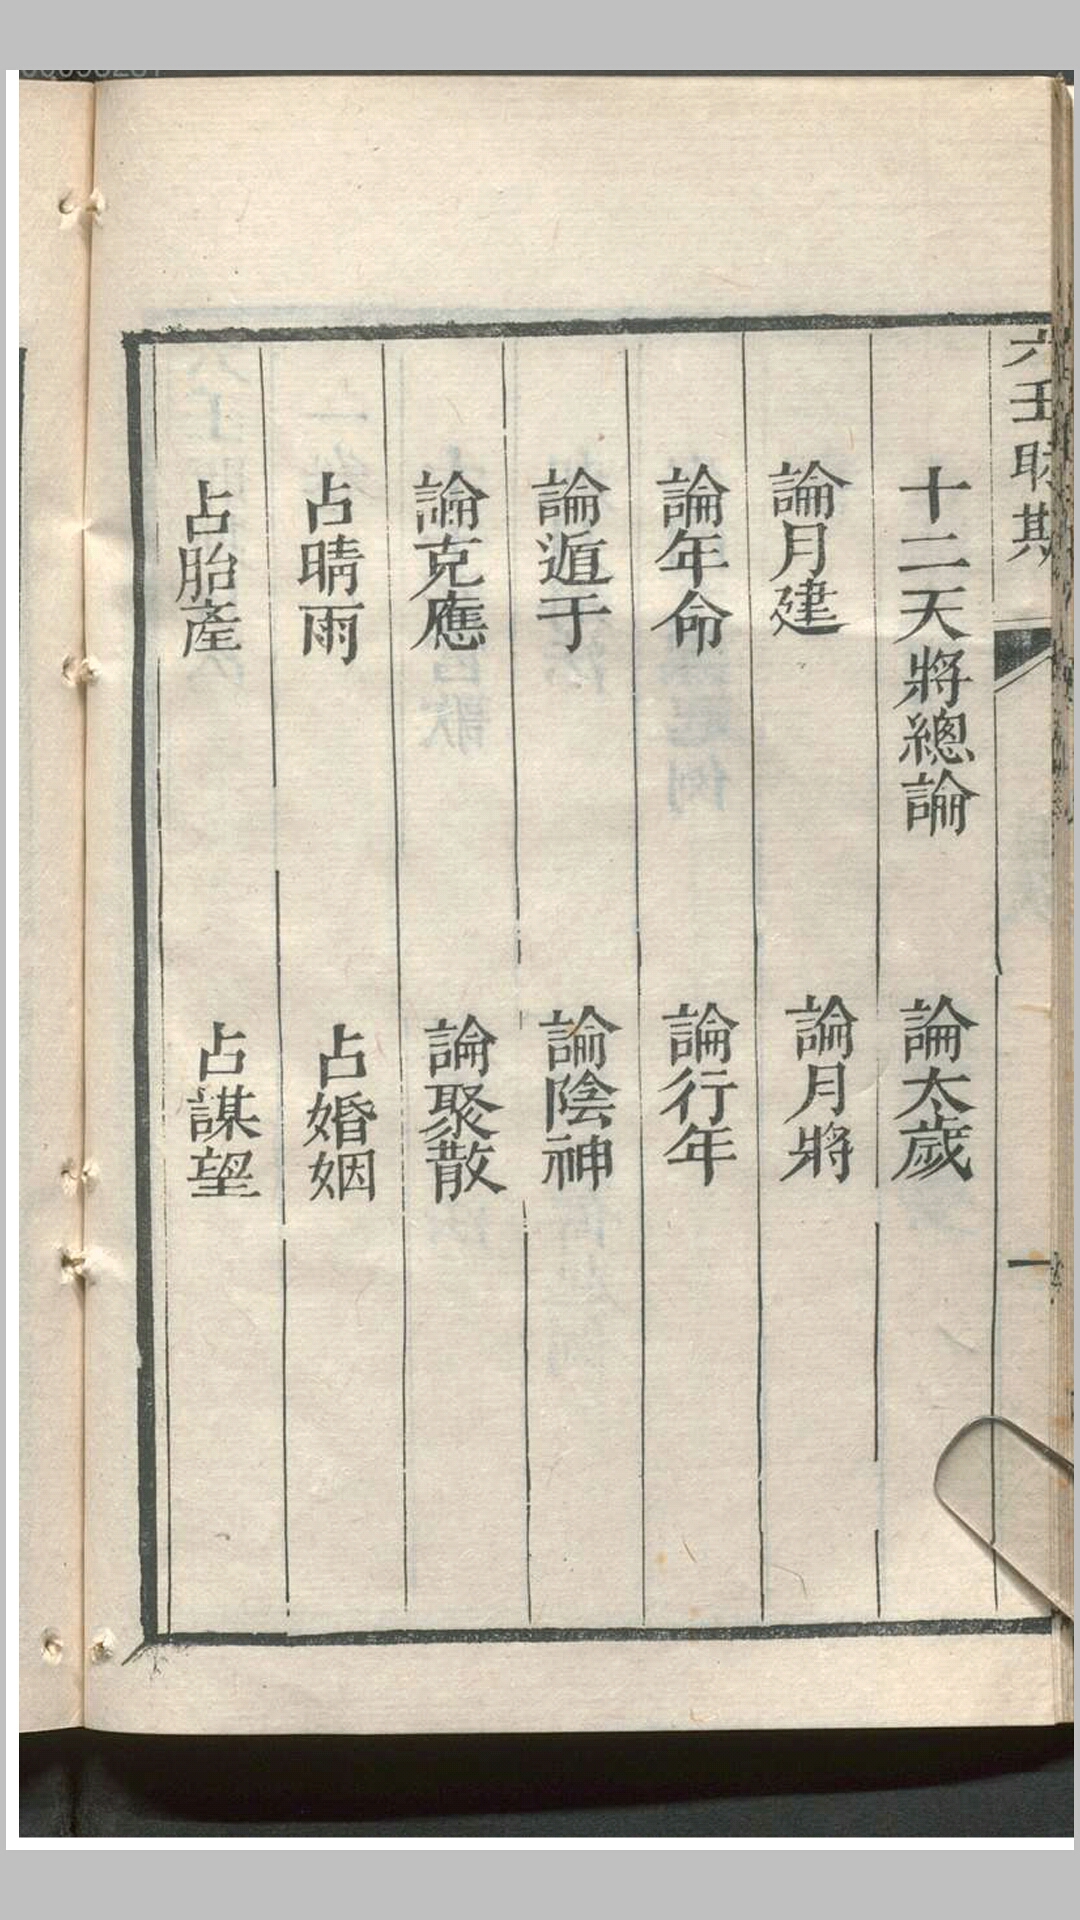 六壬
十二天將總論 論太歲
論月建 論月將
論年命 論行年
論遁于 論陰神
論克應 論聚散
占晴雨 占婚姻
占胎產 占謀望
一